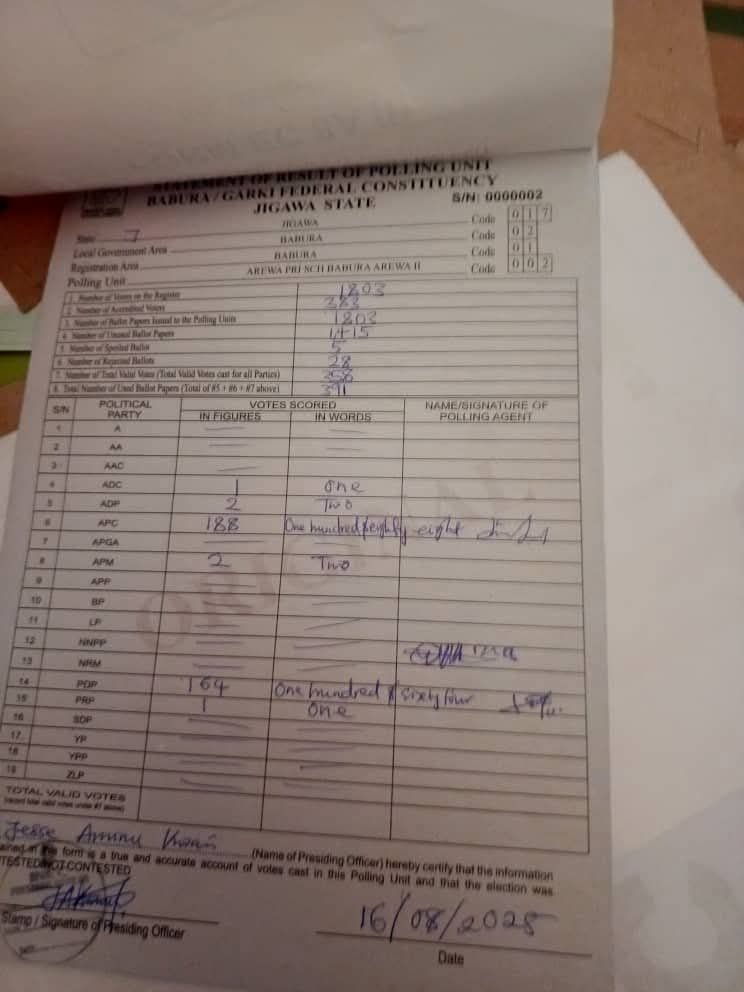 STATEMENT OF RESULT OF POLLING UNIT
BABURA / GARKI FEDERAL CONSTITUENCY
JIGAWA STATE
S/N: 0000002
State JIGAWA Code 0 1 7
Local Government Area BABURA Code 0 2
Registration Area BABURA Code 0 1
Polling Unit AREWA PRI SCH BABURA AREWA II Code 0 0 2
1. Number of Voters on the Register 1803
2. Number of Accredited Voters 383
3. Number of Ballot Papers Issued to the Polling Units 1803
4. Number of Unused Ballot Papers 1415
5. Number of Spoiled Ballot 5
6. Number of Rejected Ballots 28
7. Number of Total Valid Votes (Total Valid Votes cast for all Parties) 358
8. Total Number of Used Ballot Papers (Total of #5 + #6 + #7 above) 391
S/N POLITICAL PARTY VOTES SCORED NAME/SIGNATURE OF POLLING AGENT
IN FIGURES IN WORDS
1 A
2 AA
3 AAC
4 ADC 1 One
5 ADP 2 Two
6 APC 188 One hundred & eighty eight
7 APGA
8 APM 2 Two
9 APP
10 BP
11 LP
12 NNPP
13 NRM
14 PDP 164 One hundred & sixty four
15 PRP 1 One
16 SDP
17 YP
18 YPP
19 ZLP
TOTAL VALID VOTES
ORIGINAL
Jesse Aminu (Name of Presiding Officer) hereby certify that the information
ained in this form is a true and accurate account of votes cast in this Polling Unit and that the election was
TESTED/NOT CONTESTED
Stamp / Signature of Presiding Officer
16/08/2025
Date